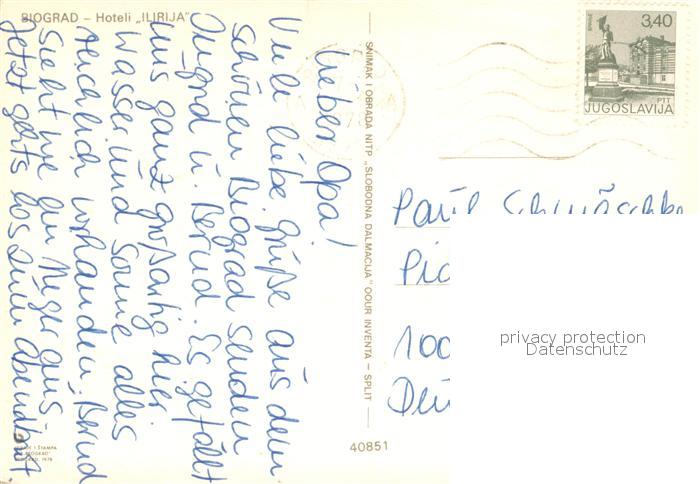 BIOGRAD – Hoteli „ILIRIJA"
Lieber Opa!
Viele liebe Grüße aus dem
schönen Biograd senden
Ingrid u. Bernd. Es gefällt
uns ganz großartig hier.
Wasser und Sonne alles
reichlich vorhanden, Bernd
sieht wie ein Neger aus
Jetzt gehts los zum Abendbrot.
SNIMAK I OBRADA NITP „SLOBODNA DALMACIJA" OOUR INVENTA – SPLIT
3,40
PTT
JUGOSLAVIJA
Paul
100
40851
privacy protection
Datenschutz